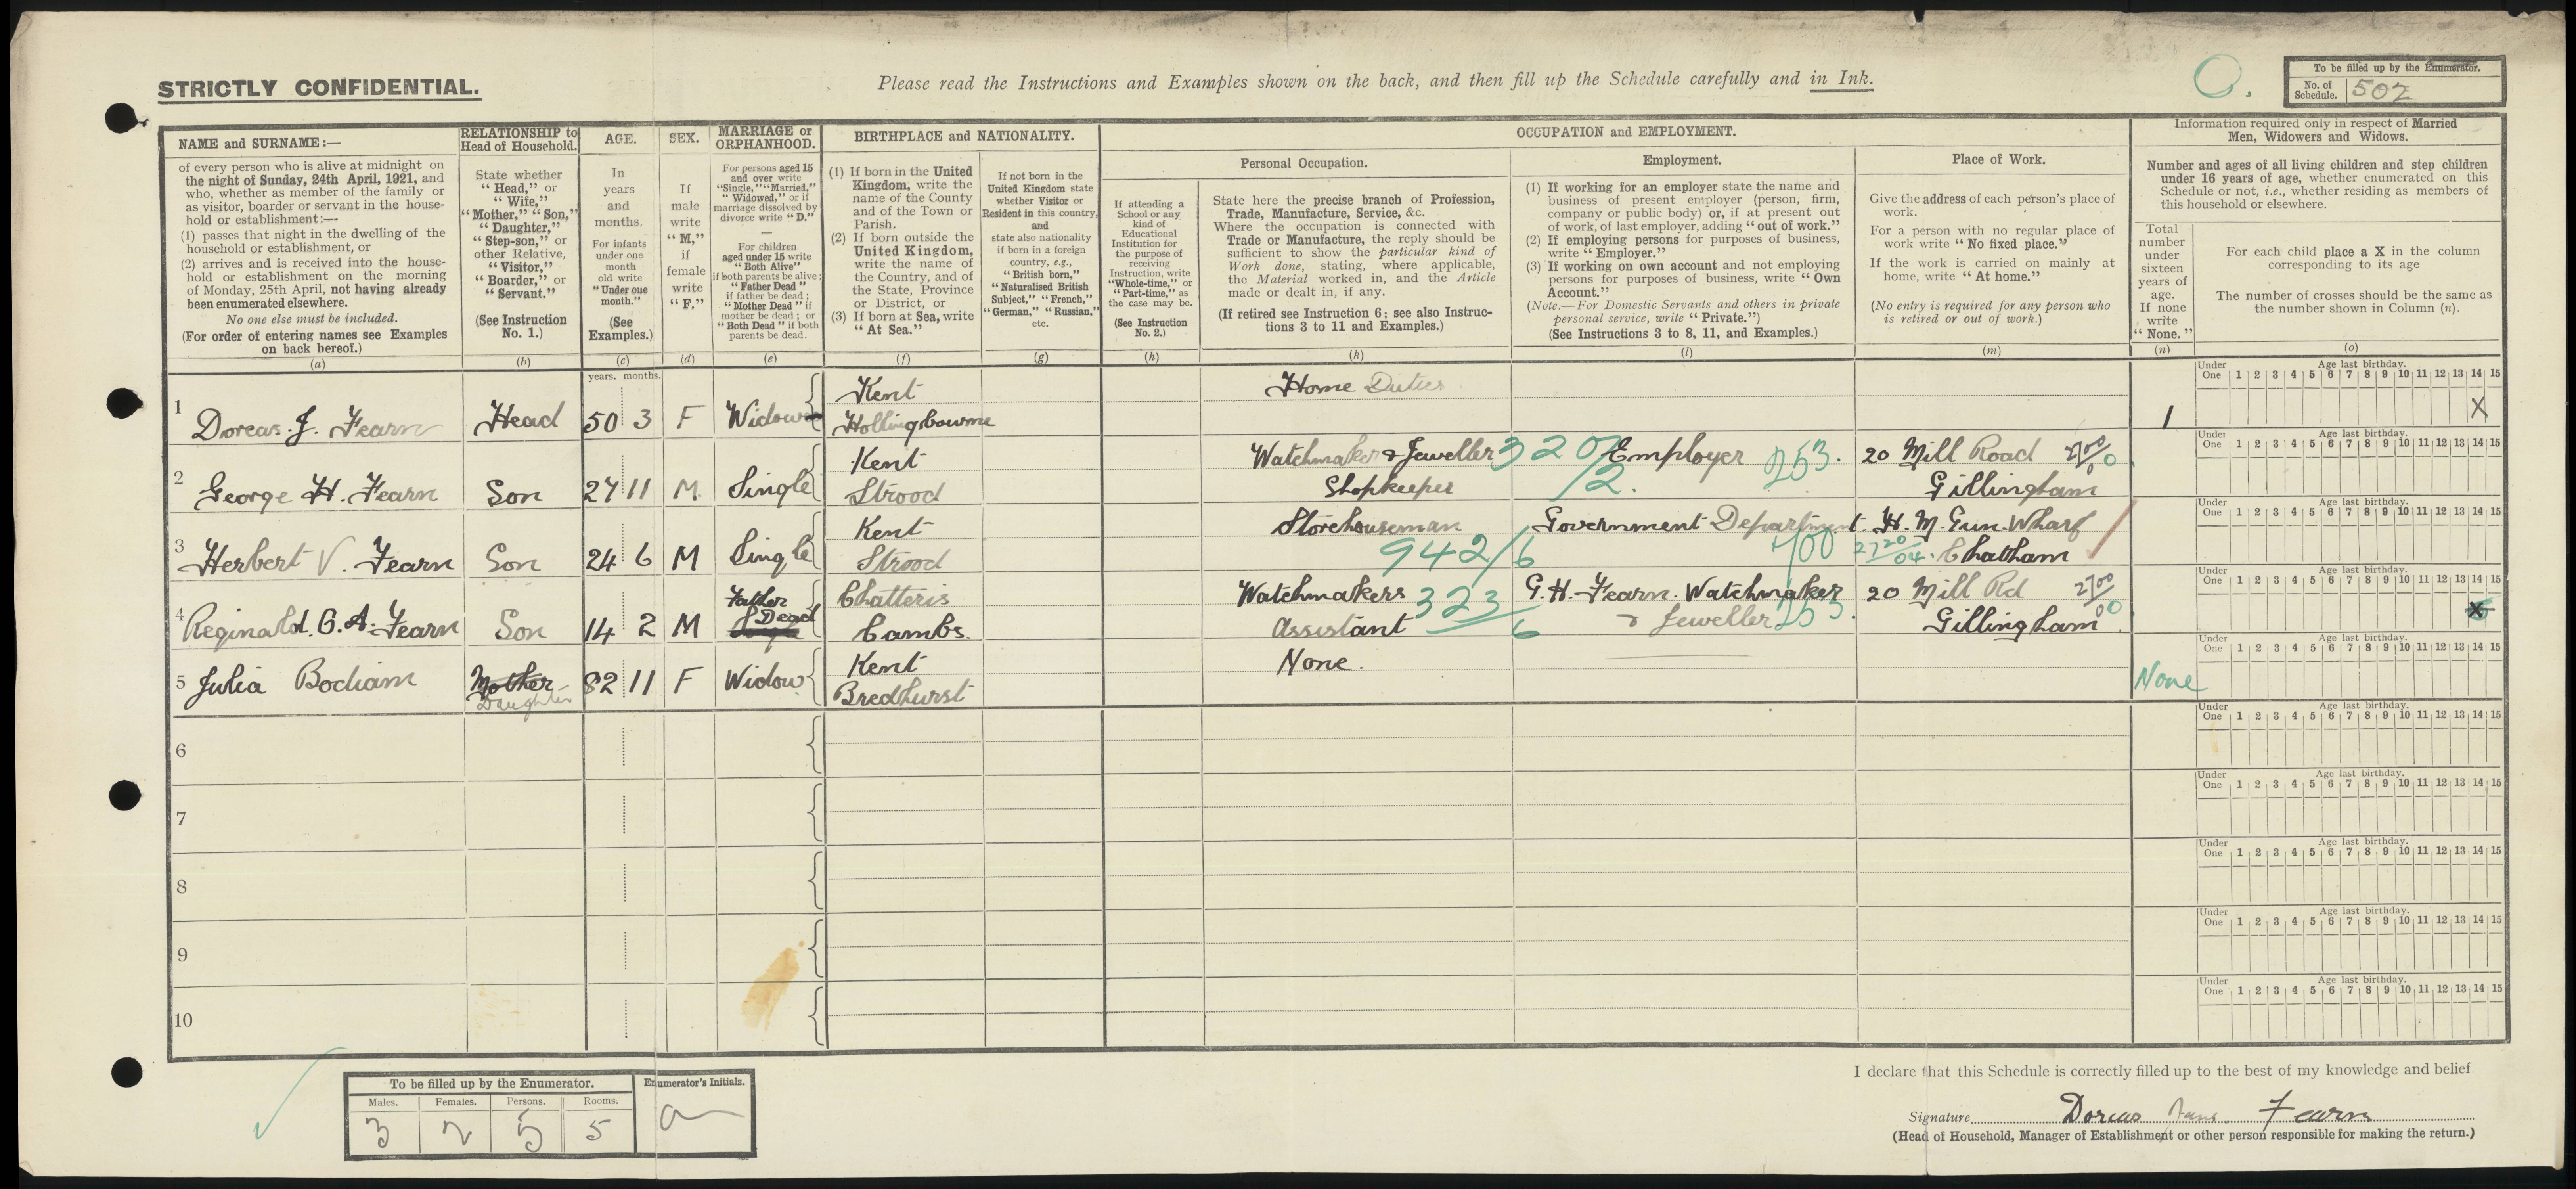 STRICTLY CONFIDENTIAL.
Please read the Instructions and Examples shown on the back, and then fill up the Schedule carefully and in Ink.
O.
To be filled up by the Enumerator.
No. of Schedule. 502
NAME and SURNAME:—
of every person who is alive at midnight on
the night of Sunday, 24th April, 1921, and
who, whether as member of the family or
as visitor, boarder or servant in the house-
hold or establishment:—
(1) passes that night in the dwelling of the
household or establishment, or
(2) arrives and is received into the house-
hold or establishment on the morning
of Monday, 25th April, not having already
been enumerated elsewhere.
No one else must be included.
(For order of entering names see Examples
on back hereof.)
(a)
RELATIONSHIP to
Head of Household.
State whether
"Head," or
"Wife,"
"Mother," "Son,"
"Daughter,"
"Step-son," or
other Relative,
"Visitor,"
"Boarder," or
"Servant."
(See Instruction
No. 1.)
(b)
AGE.
In
years
and
months.
For infants
under one
month
old write
"Under one
month."
(See
Examples.)
(c)
SEX.
If
male
write
"M,"
if
female
write
"F."
(d)
MARRIAGE or
ORPHANHOOD.
For persons aged 15
and over write
"Single," "Married,"
"Widowed," or if
marriage dissolved by
divorce write "D."
—
For children
aged under 15 write
"Both Alive"
if both parents be alive;
"Father Dead"
if father be dead;
"Mother Dead" if
mother be dead; or
"Both Dead" if both
parents be dead.
(e)
BIRTHPLACE and NATIONALITY.
(1) If born in the United
Kingdom, write the
name of the County
and of the Town or
Parish.
(2) If born outside the
United Kingdom,
write the name of
the Country, and of
the State, Province
or District, or
(3) If born at Sea, write
"At Sea."
(f)
If not born in the
United Kingdom state
whether Visitor or
Resident in this country,
and
state also nationality
if born in a foreign
country, e.g.,
"British born,"
"Naturalised British
Subject," "French,"
"German," "Russian,"
etc.
(g)
OCCUPATION and EMPLOYMENT.
If attending a
School or any
kind of
Educational
Institution for
the purpose of
receiving
Instruction, write
"Whole-time," or
"Part-time," as
the case may be.
(See Instruction
No. 2.)
(h)
Personal Occupation.
State here the precise branch of Profession,
Trade, Manufacture, Service, &c.
Where the occupation is connected with
Trade or Manufacture, the reply should be
sufficient to show the particular kind of
Work done, stating, where applicable,
the Material worked in, and the Article
made or dealt in, if any.
(If retired see Instruction 6; see also Instruc-
tions 3 to 11 and Examples.)
(k)
Employment.
(1) If working for an employer state the name and
business of present employer (person, firm,
company or public body) or, if at present out
of work, of last employer, adding "out of work."
(2) If employing persons for purposes of business,
write "Employer."
(3) If working on own account and not employing
persons for purposes of business, write "Own
Account."
(Note.—For Domestic Servants and others in private
personal service, write "Private.")
(See Instructions 3 to 8, 11, and Examples.)
(l)
Place of Work.
Give the address of each person's place of
work.
For a person with no regular place of
work write "No fixed place."
If the work is carried on mainly at
home, write "At home."
(No entry is required for any person who
is retired or out of work.)
(m)
Information required only in respect of Married
Men, Widowers and Widows.
Number and ages of all living children and step children
under 16 years of age, whether enumerated on this
Schedule or not, i.e., whether residing as members of
this household or elsewhere.
Total
number
under
sixteen
years of
age.
If none
write
"None."
(n)
For each child place a X in the column
corresponding to its age
The number of crosses should be the same as
the number shown in Column (n).
(o)
years. months.
Under One Age last birthday. 1 2 3 4 5 6 7 8 9 10 11 12 13 14 15
1 Dorcas. J. Fearn Head 50 3 F Widow Kent Hollingbourne Home Duties 1 X
Under One Age last birthday. 1 2 3 4 5 6 7 8 9 10 11 12 13 14 15
2 George H. Fearn Son 27 11 M. Single Kent Strood Watchmaker & Jeweller Shopkeeper 320/2. Employer 253. 20 Mill Road Gillingham 2700 0
Under One Age last birthday. 1 2 3 4 5 6 7 8 9 10 11 12 13 14 15
3 Herbert V. Fearn Son 24 6 M Single Kent Strood Storehouseman 942/6 Government Department. 700 H. M. Gun. Wharf Chatham 2720 04
Under One Age last birthday. 1 2 3 4 5 6 7 8 9 10 11 12 13 14 15
4 Reginald. C. A. Fearn Son 14 2 M Father Dead Chatteris Cambs. Watchmakers Assistant 323 6 G. H. Fearn. Watchmaker & Jeweller 253. 20 Mill Rd Gillingham 2700 0 X
Under One Age last birthday. 1 2 3 4 5 6 7 8 9 10 11 12 13 14 15
5 Julia Bodiam Mother Daughter 82 11 F Widow Kent Bredhurst None. None
Under One Age last birthday. 1 2 3 4 5 6 7 8 9 10 11 12 13 14 15
6
Under One Age last birthday. 1 2 3 4 5 6 7 8 9 10 11 12 13 14 15
7
Under One Age last birthday. 1 2 3 4 5 6 7 8 9 10 11 12 13 14 15
8
Under One Age last birthday. 1 2 3 4 5 6 7 8 9 10 11 12 13 14 15
9
Under One Age last birthday. 1 2 3 4 5 6 7 8 9 10 11 12 13 14 15
10
To be filled up by the Enumerator.
Males. Females. Persons. Rooms.
3 2 5 5
Enumerator's Initials.
I declare that this Schedule is correctly filled up to the best of my knowledge and belief
Signature Dorcas Jane Fearn
(Head of Household, Manager of Establishment or other person responsible for making the return.)